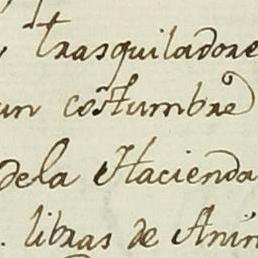 trasquiladore
un costumbre
dela Hacienda
. libras de Anin